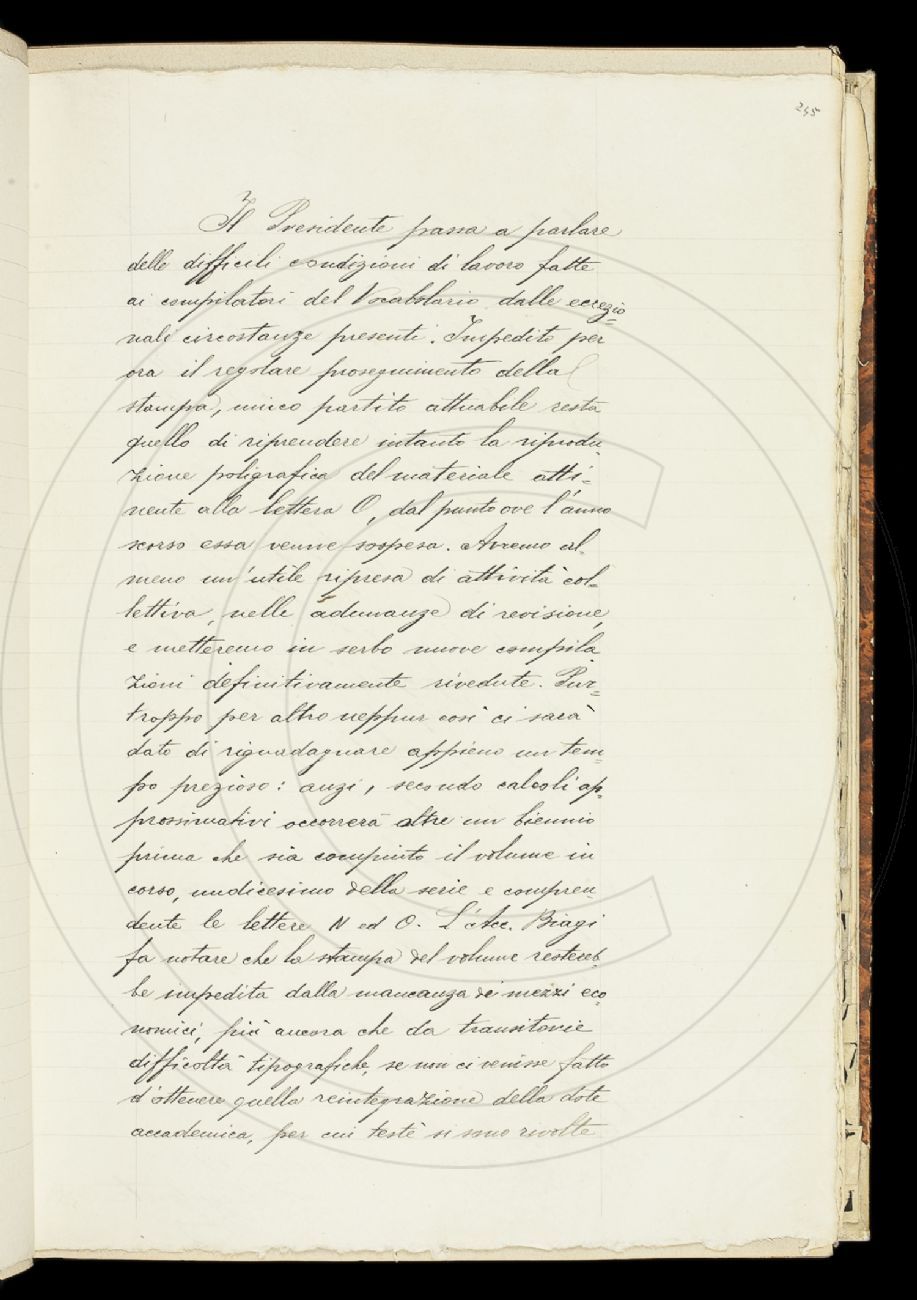 245
Il Presidente passa a parlare
delle difficili condizioni di lavoro fatte
ai compilatori del Vocabolario dalle eccezio=
nali circostanze presenti. Impedito per
ora il regolare proseguimento della
stampa, unico partito attuabile resta
quello di riprendere intanto la riprodu=
zione poligrafica del materiale atti=
nente alla lettera O, dal punto ove l'anno
scorso essa venne sospesa. Avremo al=
meno un'utile ripresa di attività col=
lettiva, nelle adunanze di revisione,
e metteremo in serbo nuove compila
zioni definitivamente rivedute. Pur=
troppo per altro neppur così ci sarà
dato di riguadagnare appieno un tem=
po prezioso: anzi, secondo calcoli ap=
prossimativi occorrerà oltre un biennio
prima che sia compiuto il volume in
corso, undicesimo della serie e compren=
dente le lettere N ed O. L'Acc. Biagi
fa notare che la stampa del volume restereb
be impedita dalla mancanza dei mezzi eco=
nomici, più ancora che da transitorie
difficoltà tipografiche, se non ci venisse fatto
d'ottenere quella reintegrazione della dote
accademica, per cui testè si sono rivolte